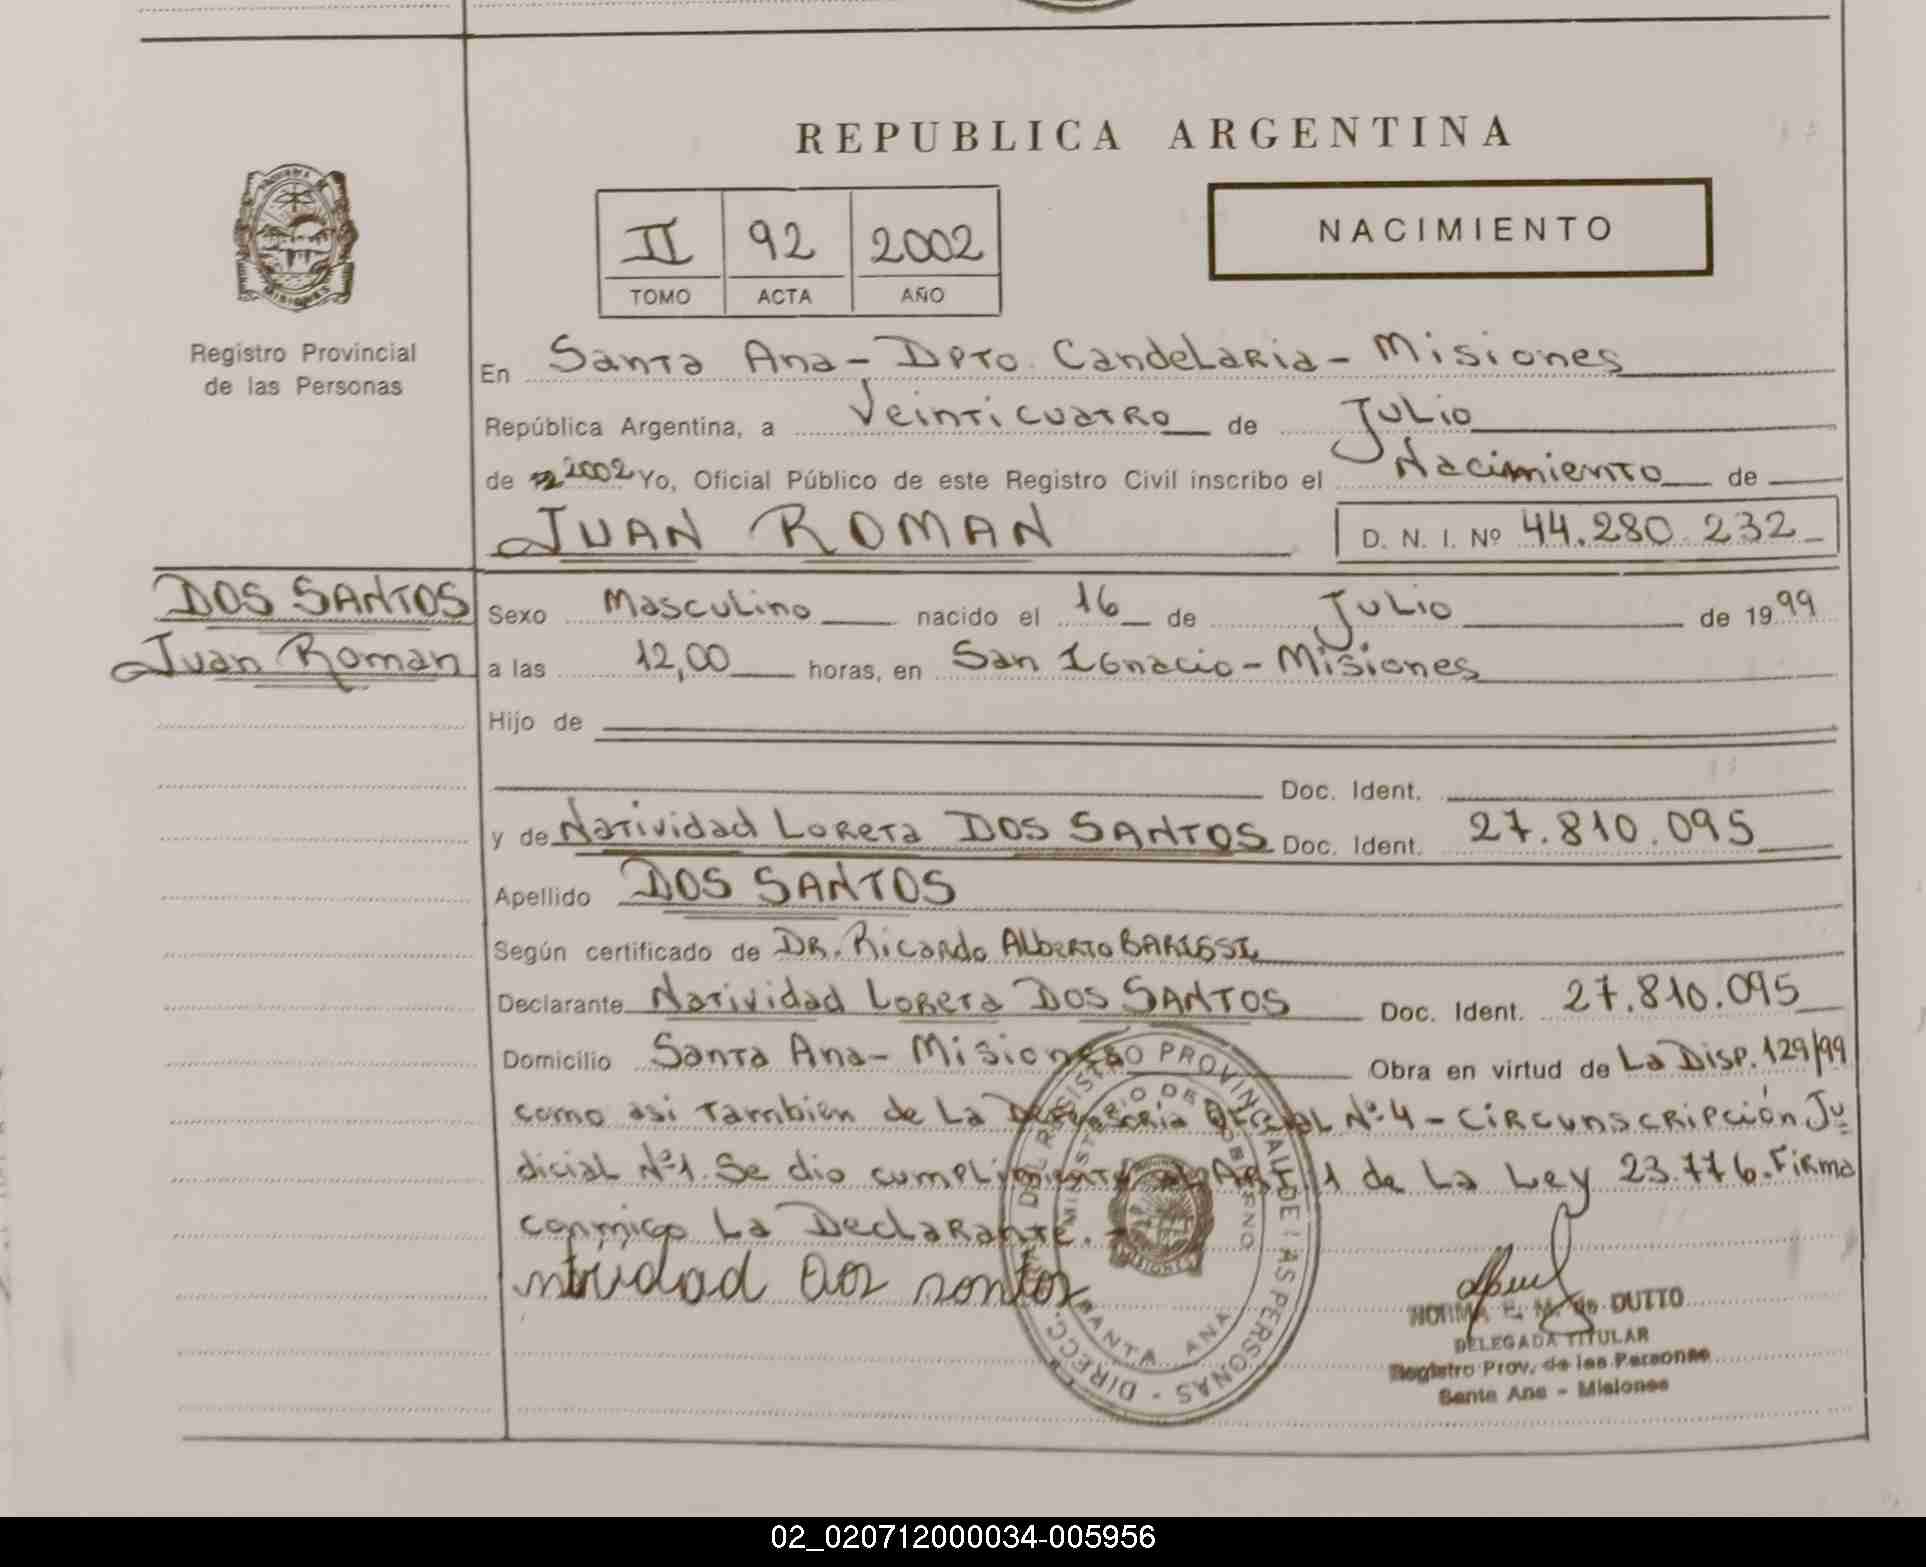 REPUBLICA ARGENTINA
II 92 2002
TOMO ACTA AÑO
NACIMIENTO
MISIONES
Registro Provincial
de las Personas
En Santa Ana - Dpto. Candelaria - Misiones
República Argentina, a Veinticuatro de Julio
de 2002 Yo, Oficial Público de este Registro Civil inscribo el Nacimiento de
JUAN ROMAN D. N. I. Nº 44.280.232
DOS SANTOS
Juan Roman
Sexo Masculino nacido el 16 de Julio de 1999
a las 12,00 horas, en San Ignacio - Misiones
Hijo de
Doc. Ident.
y de Natividad Loreta DOS SANTOS Doc. Ident. 27.810.095
Apellido DOS SANTOS
Según certificado de DR. Ricardo Alberto
Declarante Natividad Loreta DOS SANTOS Doc. Ident. 27.810.095
Domicilio Santa Ana - Misiones Obra en virtud de La Disp. 129/99
como asi tambien de La Defensoria Oficial Nº 4 - Circunscripción Ju
dicial Nº 1. Se dio cumplimiento al Art. 11 de La Ley 23.776. Firma
conmigo La Declarante. -
ntvidad dos santos
DIRECC. DEL REGISTRO PROVINCIAL DE LAS PERSONAS -
MINISTERIO DE GOBIERNO
SANTA ANA
MISIONES
NORMA E. M. de DUTTO
DELEGADA TITULAR
Registro Prov. de las Personas
Santa Ana - Misiones
02_020712000034-005956